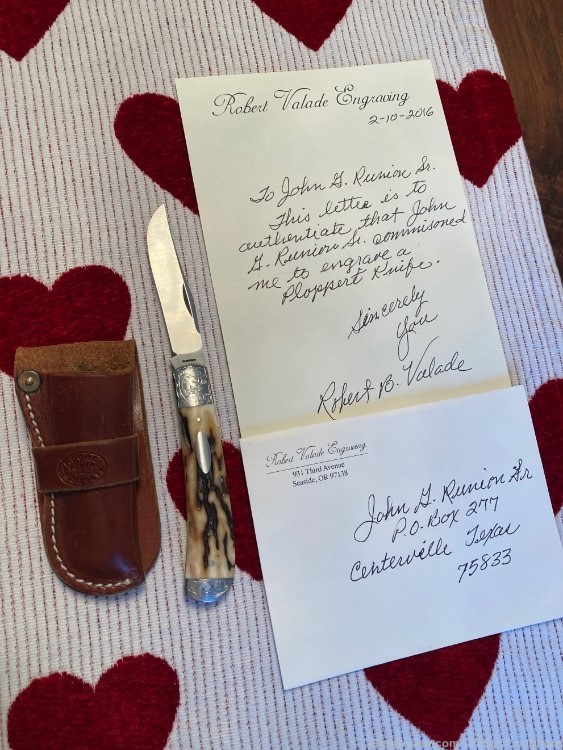 Robert Valade Engraving
2-10-2016
To John G. Runion Sr.
This letter is to
authentiate that John
G. Runion Sr. commisoned
me to engrave a
Ploppert Knife.
Sincerely
You
Robert B. Valade
Robert Valade Engraving
931 Third Avenue
Seaside, OR 97138
John G. Runion Sr
P.O. Box 277
Centerville Texas
75833